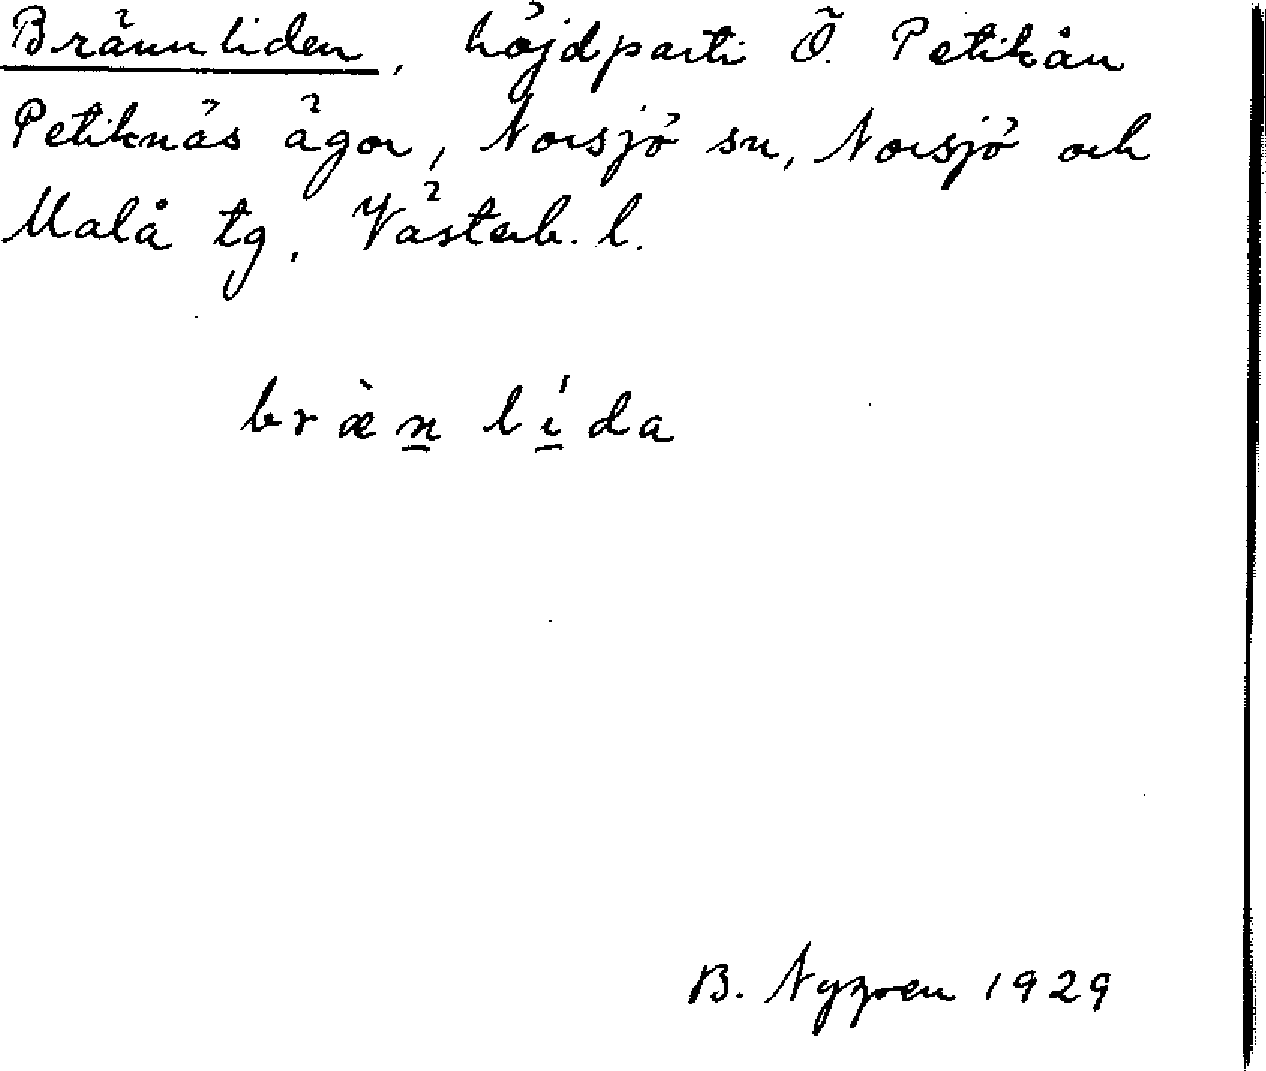 Brännliden, höjdparti Ö. Petikån
Petiknäs ägor, Norsjö sn, Norsjö och
Malå tg, Västerb. l.
bræ̀n̲ lí̲da
B. Nygren 1929